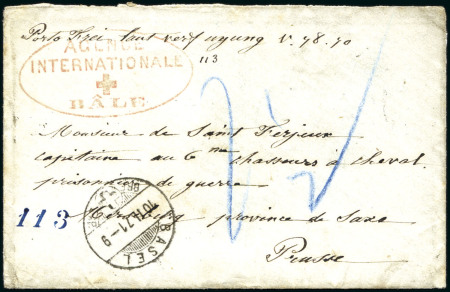 Porto Frei laut verfügung v. 78.70
AGENCE
INTERNATIONALE
BÂLE
113
Monsieur de Saint Ferjeux
capitaine au 6me chasseurs à cheval
prisonnier de guerre
113
Merseburg province de Saxe
Prusse
BASEL
10 II 71–9